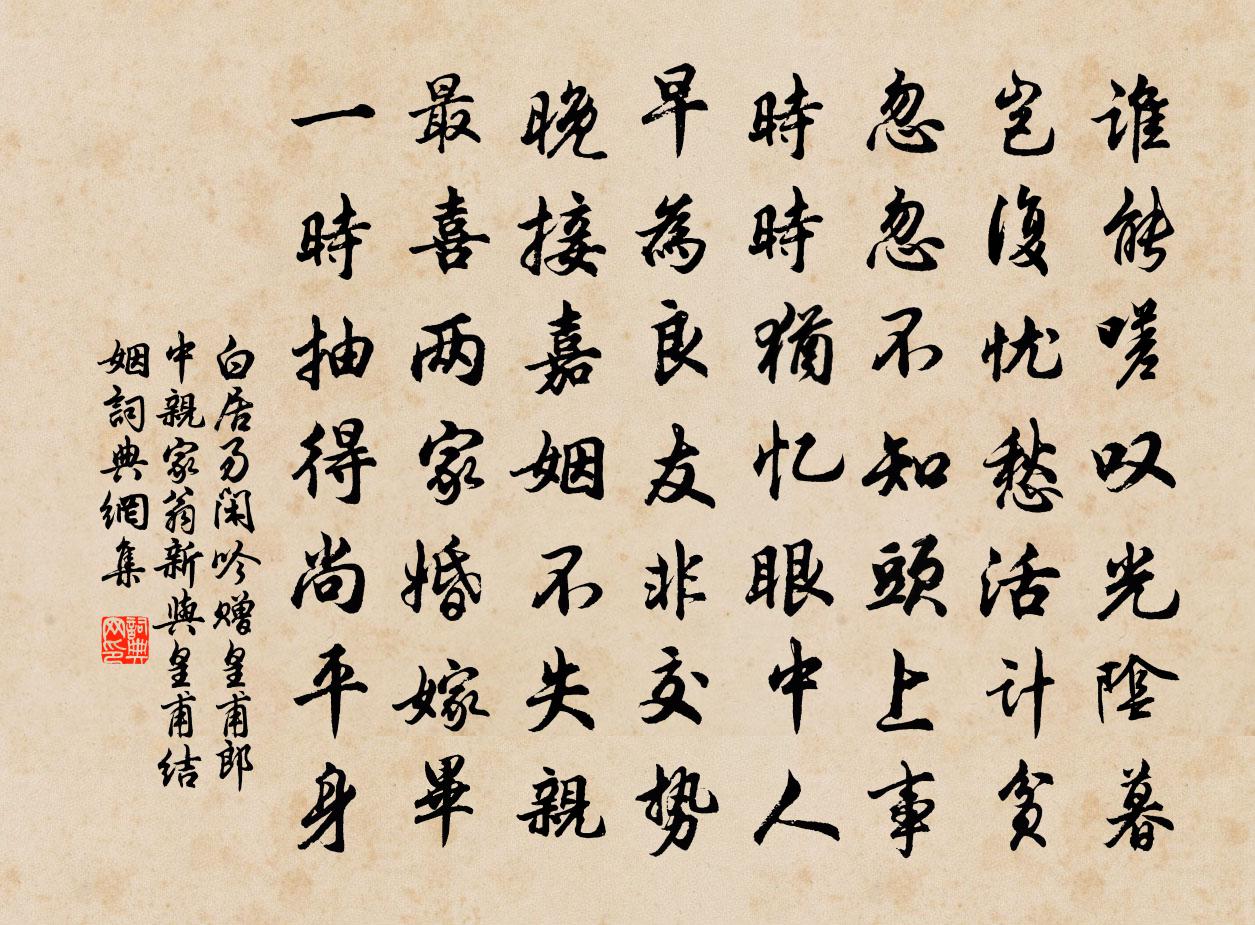 谁能嗟叹光陰暮
岂復忧愁活计贫
忽忽不知頭上事
時時猶忆眼中人
早為良友非交势
晚接嘉姻不失親
最喜两家婚嫁畢
一時抽得尚平身
白居易闲吟赠皇甫郎
中親家翁新與皇甫结
姻詞典網集
詞典网印